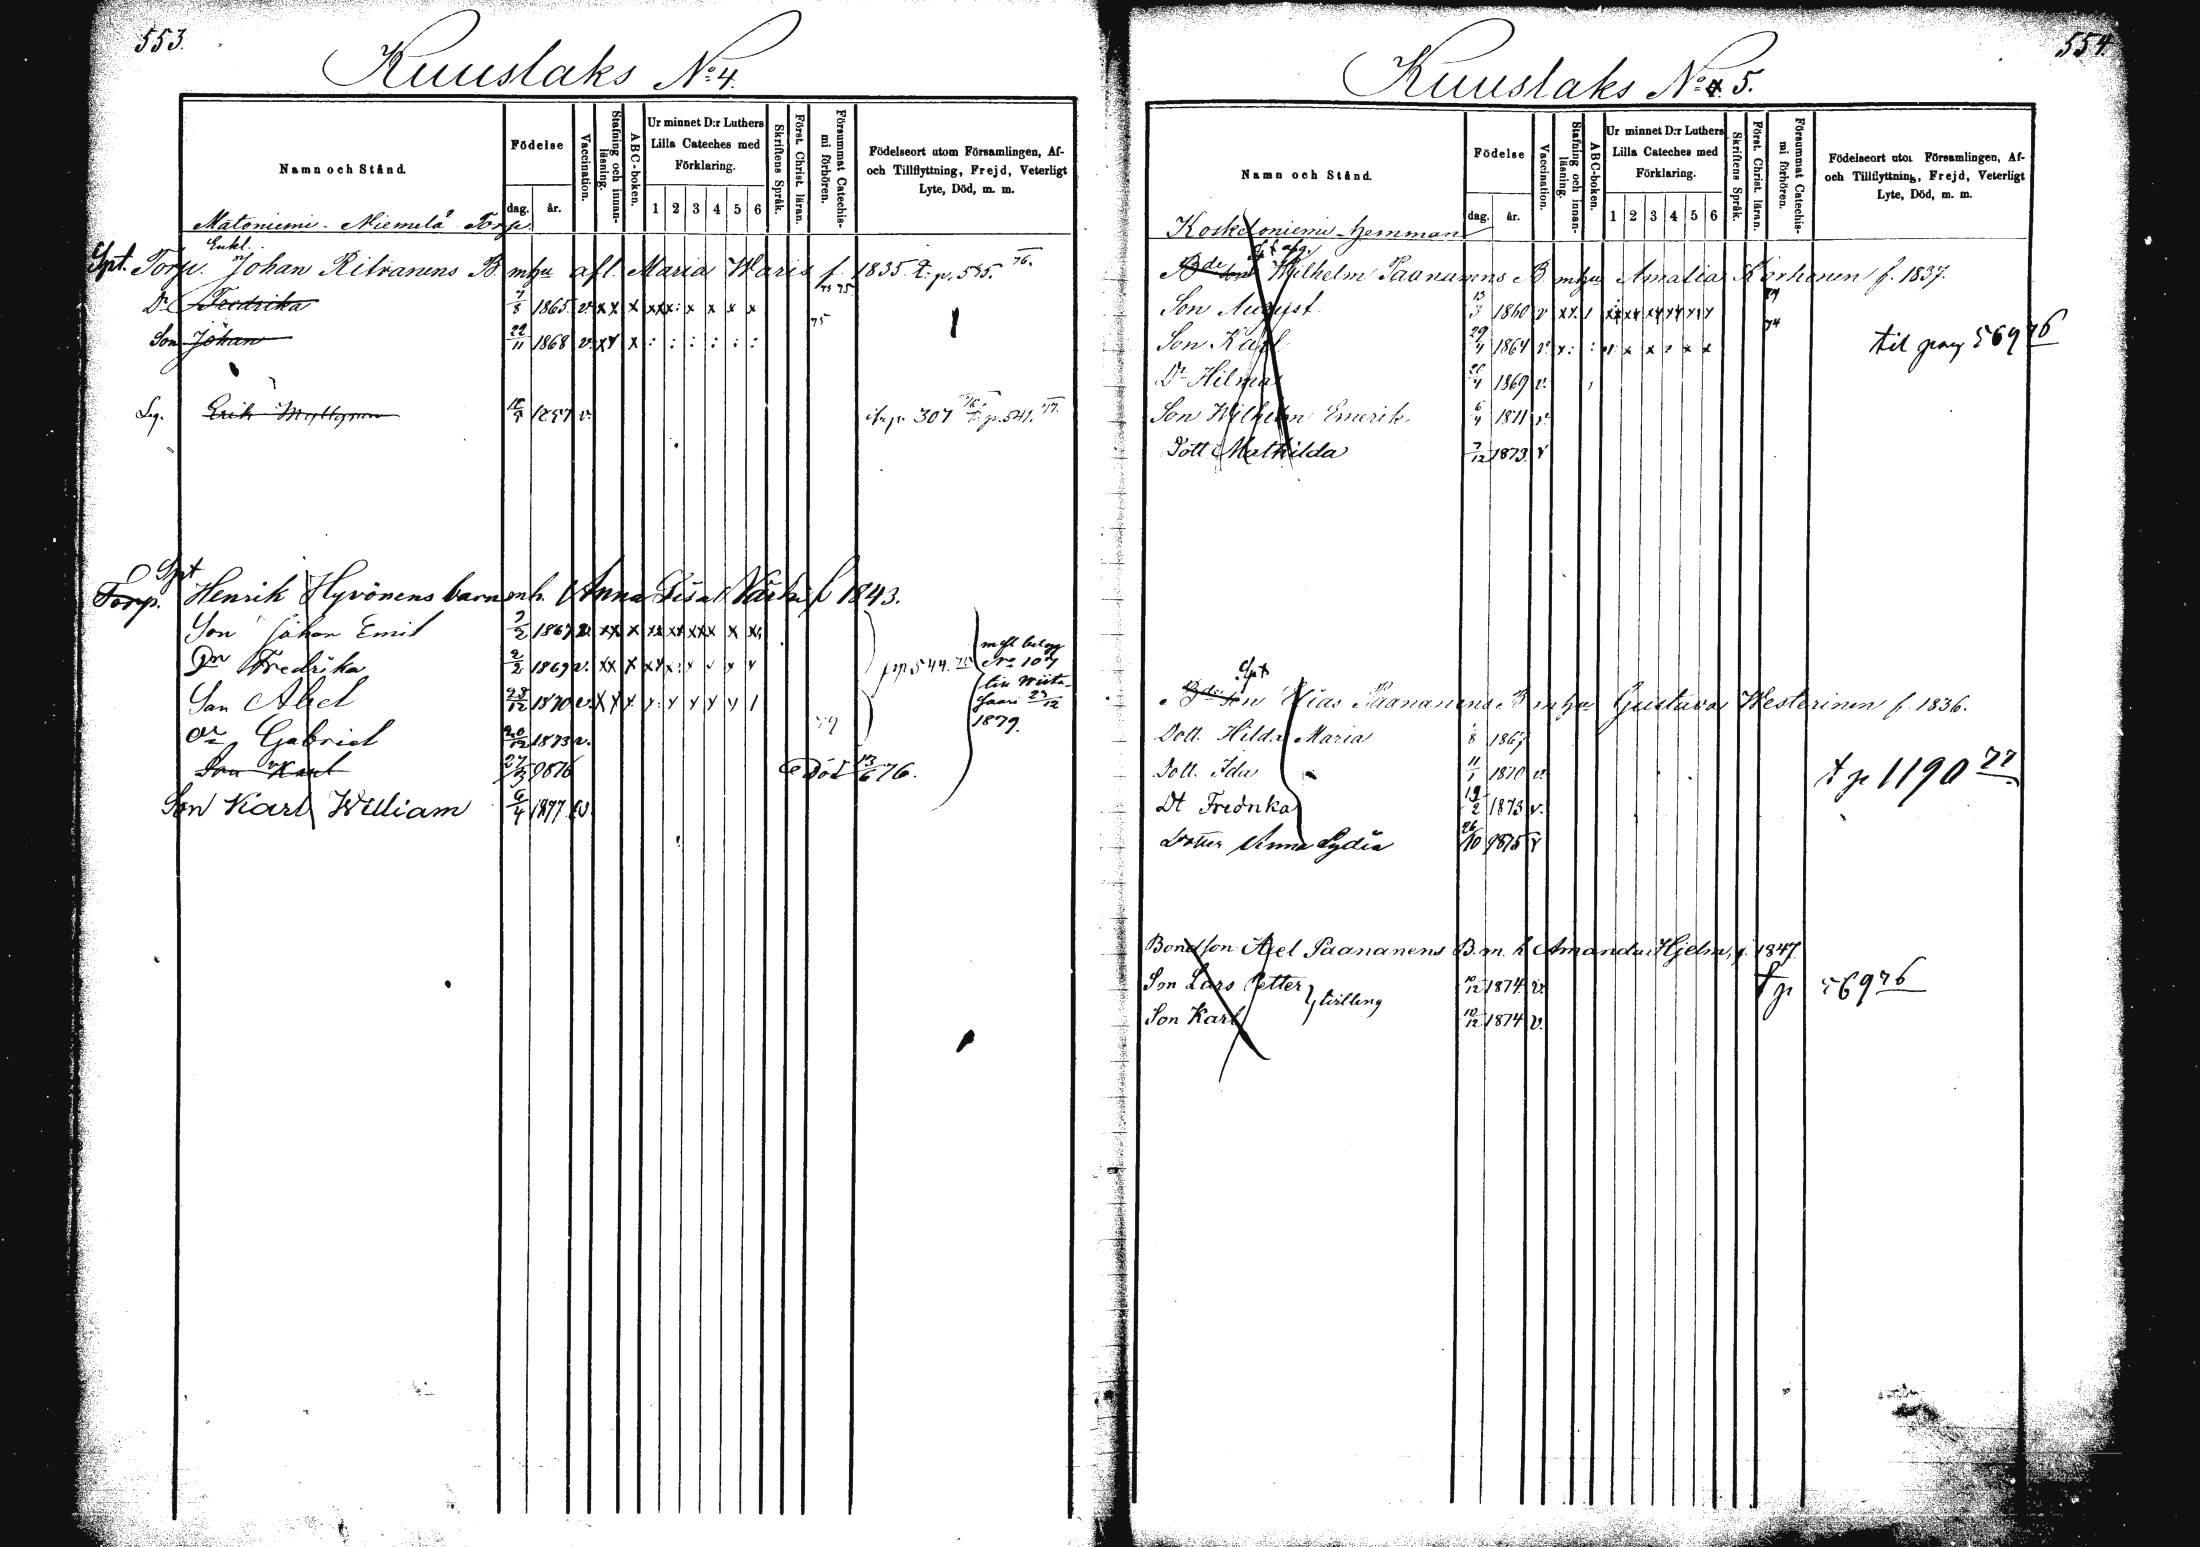 553.
Kuuslaks No 4.
Namn och Stånd.
Födelse
dag. år.
Vaccination.
Stafning och innanläsning.
ABC-boken.
Ur minnet D:r Luthers Lilla Cateches med Förklaring.
1 2 3 4 5 6
Skriftens Språk.
Först. Christ. läran.
Försummat Catechismi förhören.
Födelseort utom Församlingen, Af- och Tillflyttning, Frejd, Veterligt Lyte, Död, m. m.
Matoniemi Niemelä Torp
Enkl.
Spt. Torp. Johan Ritvanens B. mhu afl. Maria Waris f. 1835. T. p. 535. 76.
73 75
Dr Fredrika 7/8 1865 v. x x x x x x x x x
75
Son Johan 22/11 1868 v. x x : : : : : :
Erik 1857 v. 307 T. p. 541. 77.
Spt
Torp. Henrik Hyvönens barn m. h. Anna Lisa f 1843.
Son Johan Emil 7/2 1867 v. xx x xx xx xxx x x
Dr Fredrika 2/2 1869 v. xx x x
p 544.
m fl betyg No 107 till Wiitasaari 23/12 1879.
Son Abel 28/12 1870 v.
79
Gabriel 20/12 1873 v.
Son Karl 27/3 1876 Död 13/6 76.
Son Karl William 6/4 1877 v.
554
Kuuslaks No 5.
Namn och Stånd.
Födelse
dag. år.
Vaccination.
Stafning och innanläsning.
ABC-boken.
Ur minnet D:r Luthers Lilla Cateches med Förklaring.
1 2 3 4 5 6
Skriftens Språk.
Först. Christ. läran.
Försummat Catechismi förhören.
Födelseort utom Församlingen, Af- och Tillflyttning, Frejd, Veterligt Lyte, Död, m. m.
Koskeloniemi hemman
Bde son Wilhelm Paananens B mhu Amalia Korhonen f. 1837.
Son August 13/3 1860 v
74
Son Karl 29/4 1864 v.
74
til pag 569 76
Dr Hilma 20/4 1869 v.
Son Wilhelm Emerik. 6/4 1871 v.
Dott Mathilda 7/12 1873 v
Spt
Bde son Elias Paananens B mhu Gustava Westerinen f. 1836.
Dott. Hilda Maria 1867
Dott. Ida 11/1 1870 v.
t p 1190 77
Dt Fredrika 19/2 1873 v.
Dotter Anna Lydia 26/10 1875 v
Bondson Axel Paananens B. m. h Amanda Hjelm, f. 1847
Son Lars Petter 10/12 1874 v. tvilling
t p 569 76
Son Karl 10/12 1874 v.